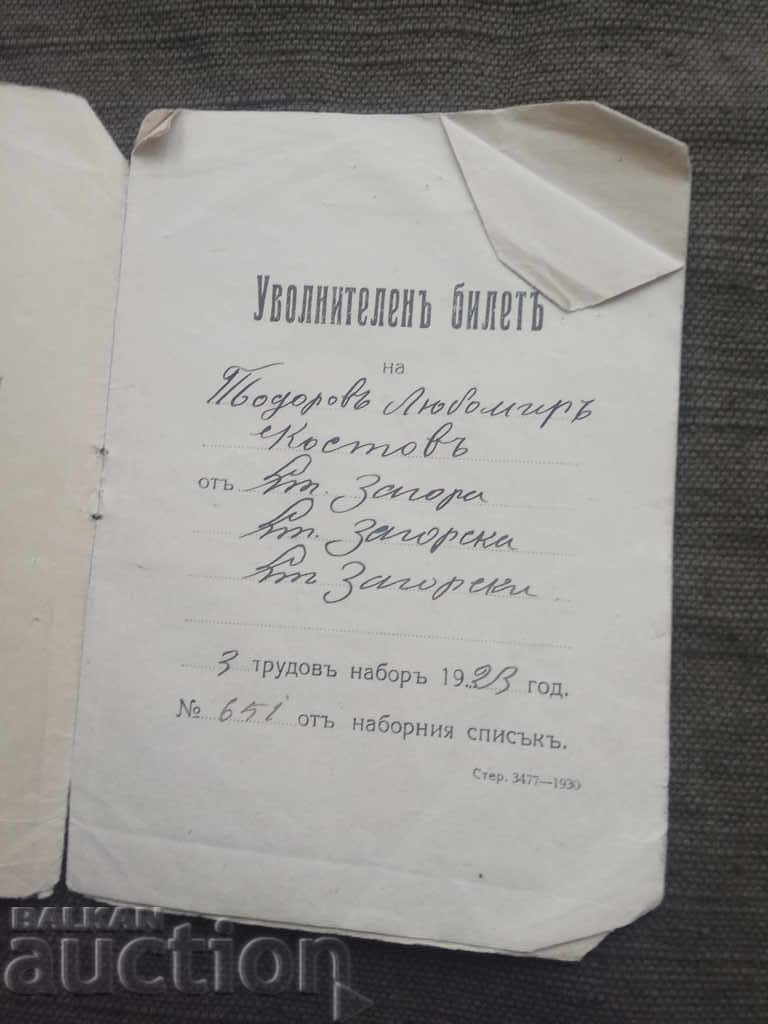 Уволнителенъ билетъ
на
Тодоровъ Любомиръ
Костовъ
отъ Ст. Загора
Ст. Загорска
Ст. Загорски
3 трудовъ наборъ 1923 год.
№ 651 отъ наборния списъкъ.
Стер. 3477—1930
BALKAN
auction